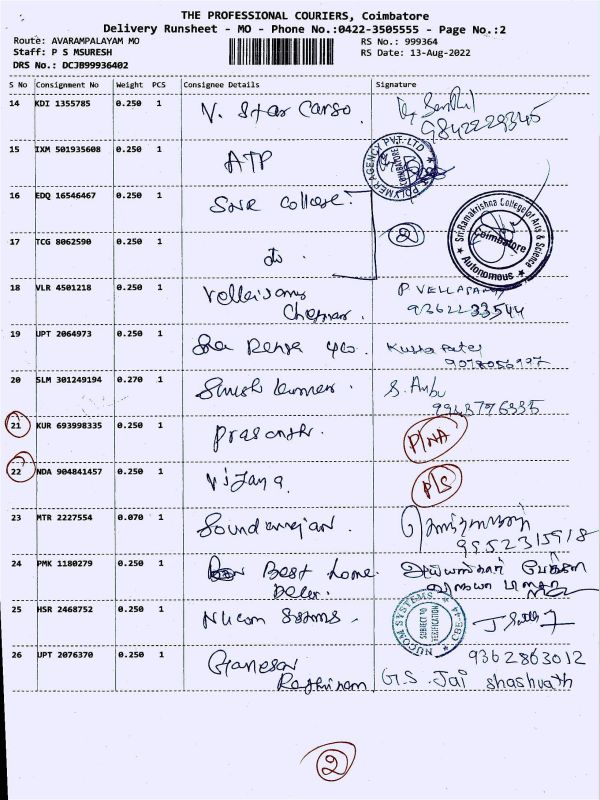 THE PROFESSIONAL COURIERS, Coimbatore
Delivery Runsheet - MO - Phone No.:0422-3505555 - Page No.:2
Route: AVARAMPALAYAM MO RS No.: 999364
Staff: P S MSURESH RS Date: 13-Aug-2022
DRS No.: DCJB99936402
S No Consignment No Weight PCS Consignee Details Signature
14 KDI 1355785 0.250 1 V. Star Cargo
9842229345
15 IXM 501935608 0.250 1 ATP POLYMER AGENCY PVT. LTD COIMBATORE
16 EDQ 16546467 0.250 1 SNR College
Sri Ramakrishna College of Arts & Science Coimbatore Autonomous
17 TCG 8062590 0.250 1 do. 2
18 VLR 4501218 0.250 1 Vellaisamy P. VELLAISAMY
9362233544
19 UPT 2064973 0.250 1
20 SLM 301249194 0.270 1 S. Anbu
21 KUR 693998335 0.250 1 Prasanth. P/NA
22 NDA 904841457 0.250 1 Vijaya P/S
23 MTR 2227554 0.070 1 Soundarrajan.
9552315918
24 PMK 1180279 0.250 1 Best home
25 HSR 2468752 0.250 1 Nucom Systems. NUCOM SYSTEMS SUBJECT TO VERIFICATION CBE-44
9362863012
26 UPT 2076370 0.250 1 Ganesar
Rathinam G.S. Jai shashvath
2